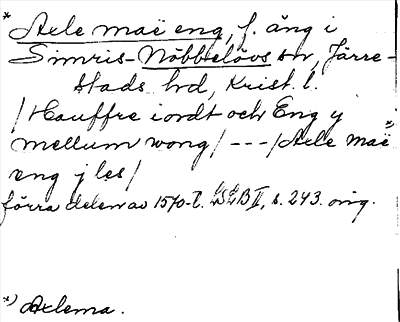 * Axle maë eng, f. äng i
Simris-Nöbbelövs sn, Järre-
stads hd, Krist. l.
/Hauffre iordt och Eng y
mellum wong/ ---/Axle maë *)
eng j les/
förra delen av 1570-t. B II, s. 243. orig.
*) Axlema.